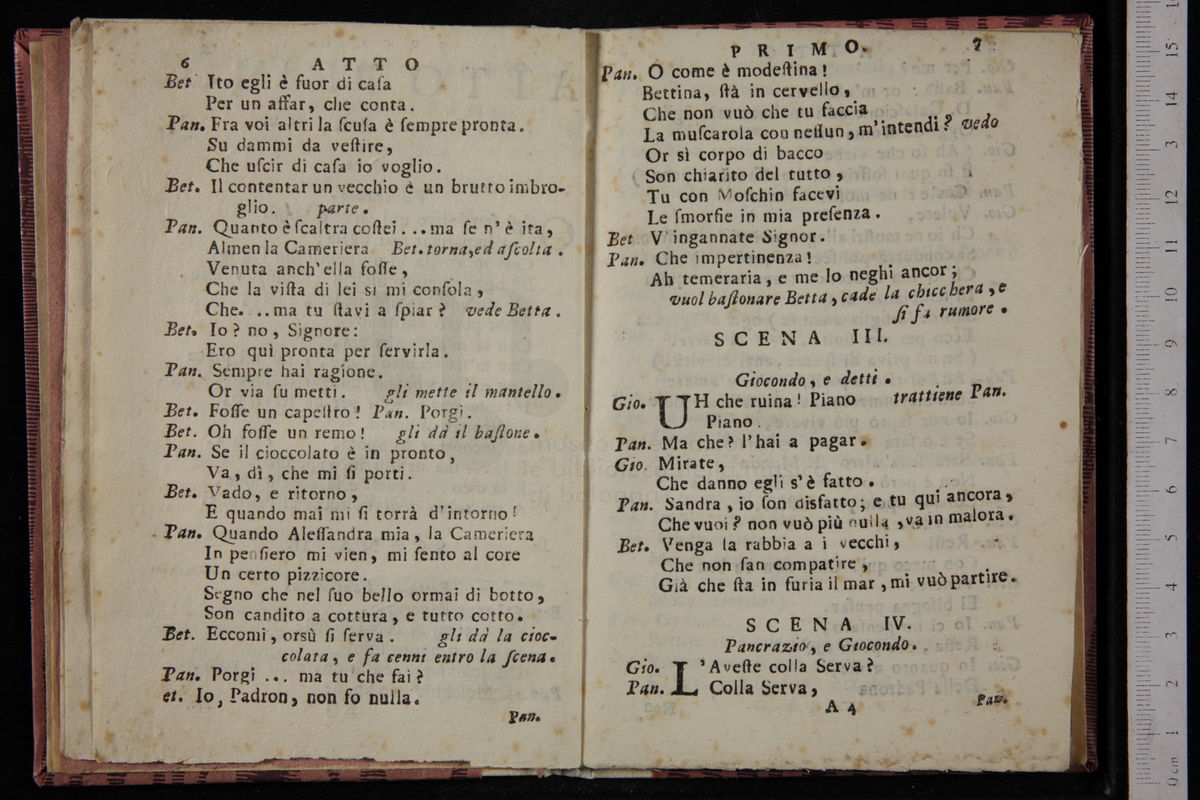 6 ATTO
Bet Ito egli è fuor di caſa
Per un affar, che conta.
Pan. Fra voi altri la ſcuſa è ſempre pronta.
Su dammi da veſtire,
Che uſcir di caſa io voglio.
Bet. Il contentar un vecchio è un brutto imbro-
glio. parte.
Pan. Quanto è ſcaltra coſtei...ma ſe n'è ita,
Almen la Cameriera Bet. torna, ed aſcolta.
Venuta anch'ella foſſe,
Che la viſta di lei si mi conſola,
Che...ma tu ſtavi a ſpiar? vede Betta.
Bet. Io? no, Signore:
Ero quì pronta per ſervirla.
Pan. Sempre hai ragione.
Or via ſu metti. gli mette il mantello.
Bet. Foſſe un capeſtro! Pan. Porgi.
Bet. Oh foſſe un remo! gli dà il baſtone.
Pan. Se il cioccolato è in pronto,
Va, dì, che mi ſi porti.
Bet. Vado, e ritorno,
E quando mai mi ſi torrà d'intorno!
Pan. Quando Aleſſandra mia, la Cameriera
In penſiero mi vien, mi ſento al core
Un certo pizzicore.
Segno che nel ſuo bello ormai di botto,
Son candito a cottura, e tutto cotto.
Bet. Eccomi, orsù ſi ferva. gli dà la cioc-
colata, e fa cenni entro la ſcena.
Pan. Porgi ... ma tu che fai?
et. Io, Padron, non fo nulla.
Pan.
PRIMO. 7
Pan. O come è modeſtina!
Bettina, ſtà in cervello,
Che non vuò che tu faccia
La muſcarola con neſſun, m'intendi? vedo
Or sì corpo di bacco
Son chiarito del tutto,
Tu con Moſchin facevi
Le ſmorfie in mia preſenza.
Bet V'ingannate Signor.
Pan. Che impertinenza!
Ah temeraria, e me lo neghi ancor;
vuol baſtonare Betta, cade la chicchera, e
ſi fa rumore.
SCENA III.
Giocondo, e detti.
Gio. UH che ruina! Piano trattiene Pan.
Piano.
Pan. Ma che? l'hai a pagar.
Gio. Mirate,
Che danno egli s'è fatto.
Pan. Sandra, io ſon disfatto; e tu qui ancora,
Che vuoi? non vuò più nulla, va in malora.
Bet. Venga la rabbia a i vecchi,
Che non ſan compatire,
Già che ſta in furia il mar, mi vuò partire.
SCENA IV.
Pancrazio, e Giocondo.
Gio. L'Aveſte colla Serva?
Pan. Colla Serva,
A 4 Pan.